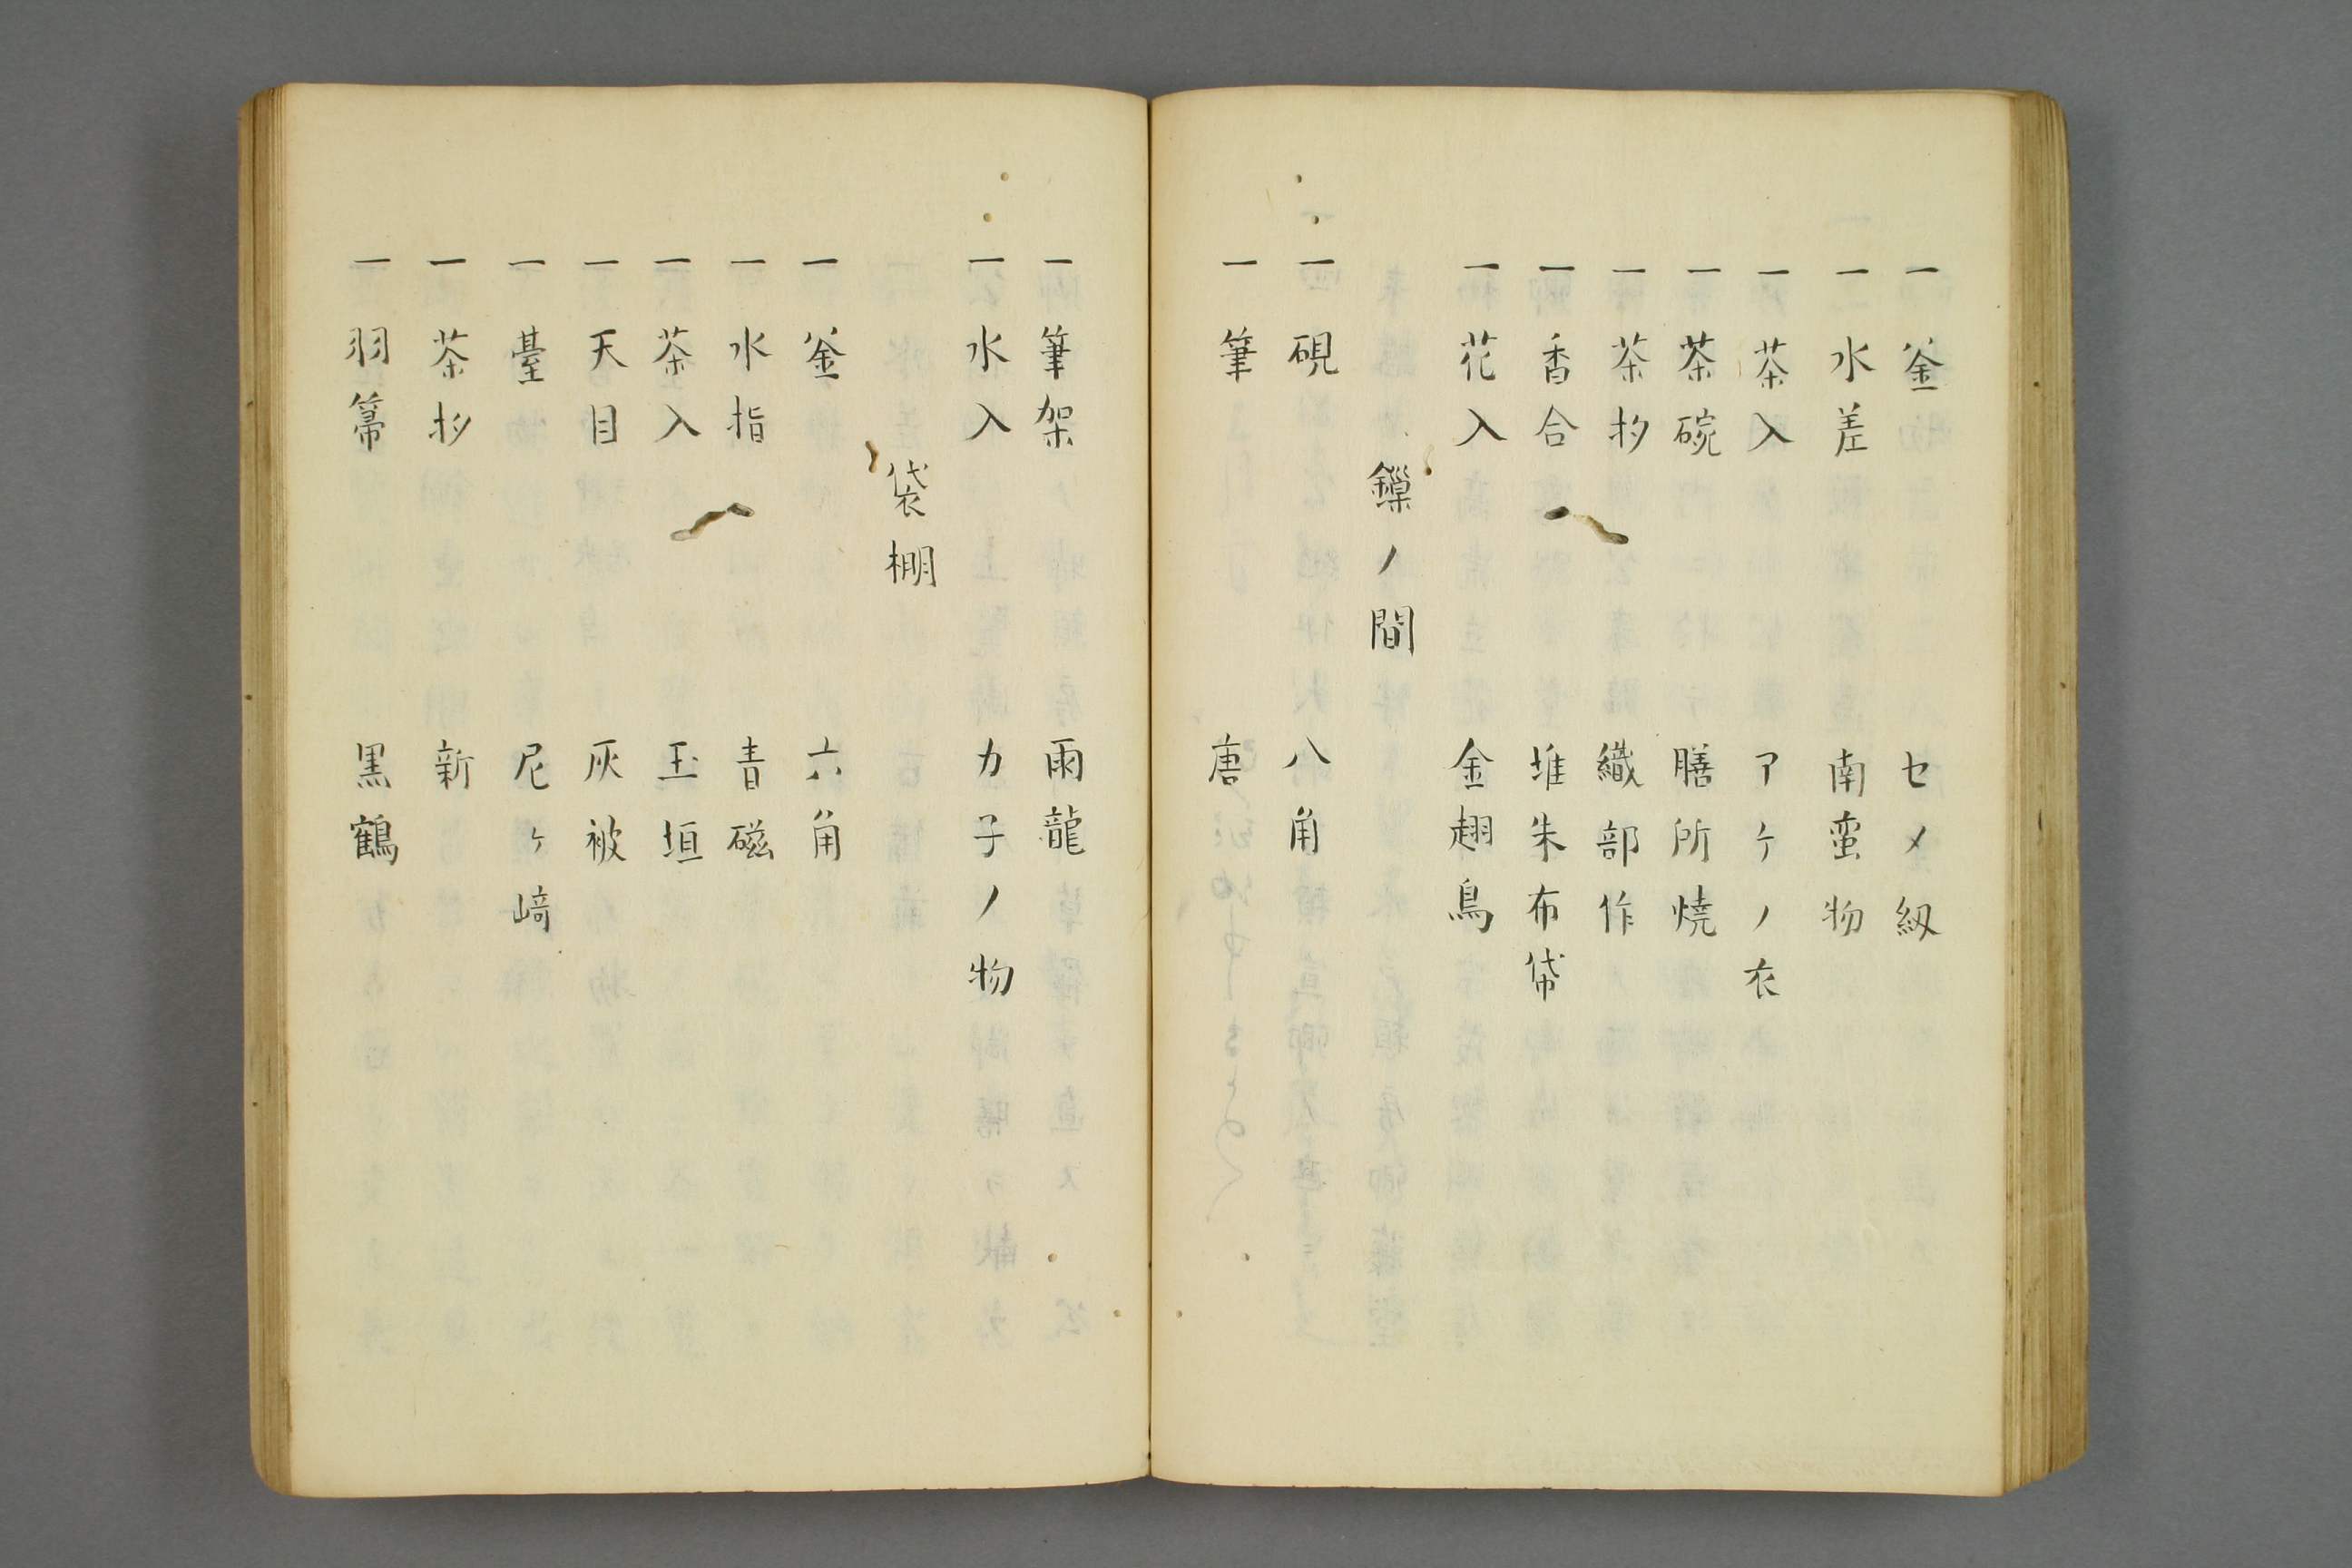 一釜 セメ紐
一水差 南蛮物
一茶入 アケノ衣
一茶碗 膳所燒
一茶杓 織部作
一香合 堆朱布袋
一花入 金翅鳥
鏁ノ間
一硯 八角
一筆 唐
一筆架 雨龍
一水入 カ子ノ物
袋棚
一釜 六角
一水指 青磁
一茶入 玉垣
一天目 灰被
一臺 尼ヶ﨑
一茶杓 新
一羽箒 黒鶴